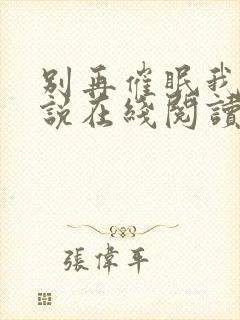 别再催眠我
說在綫閱讀
張偉平